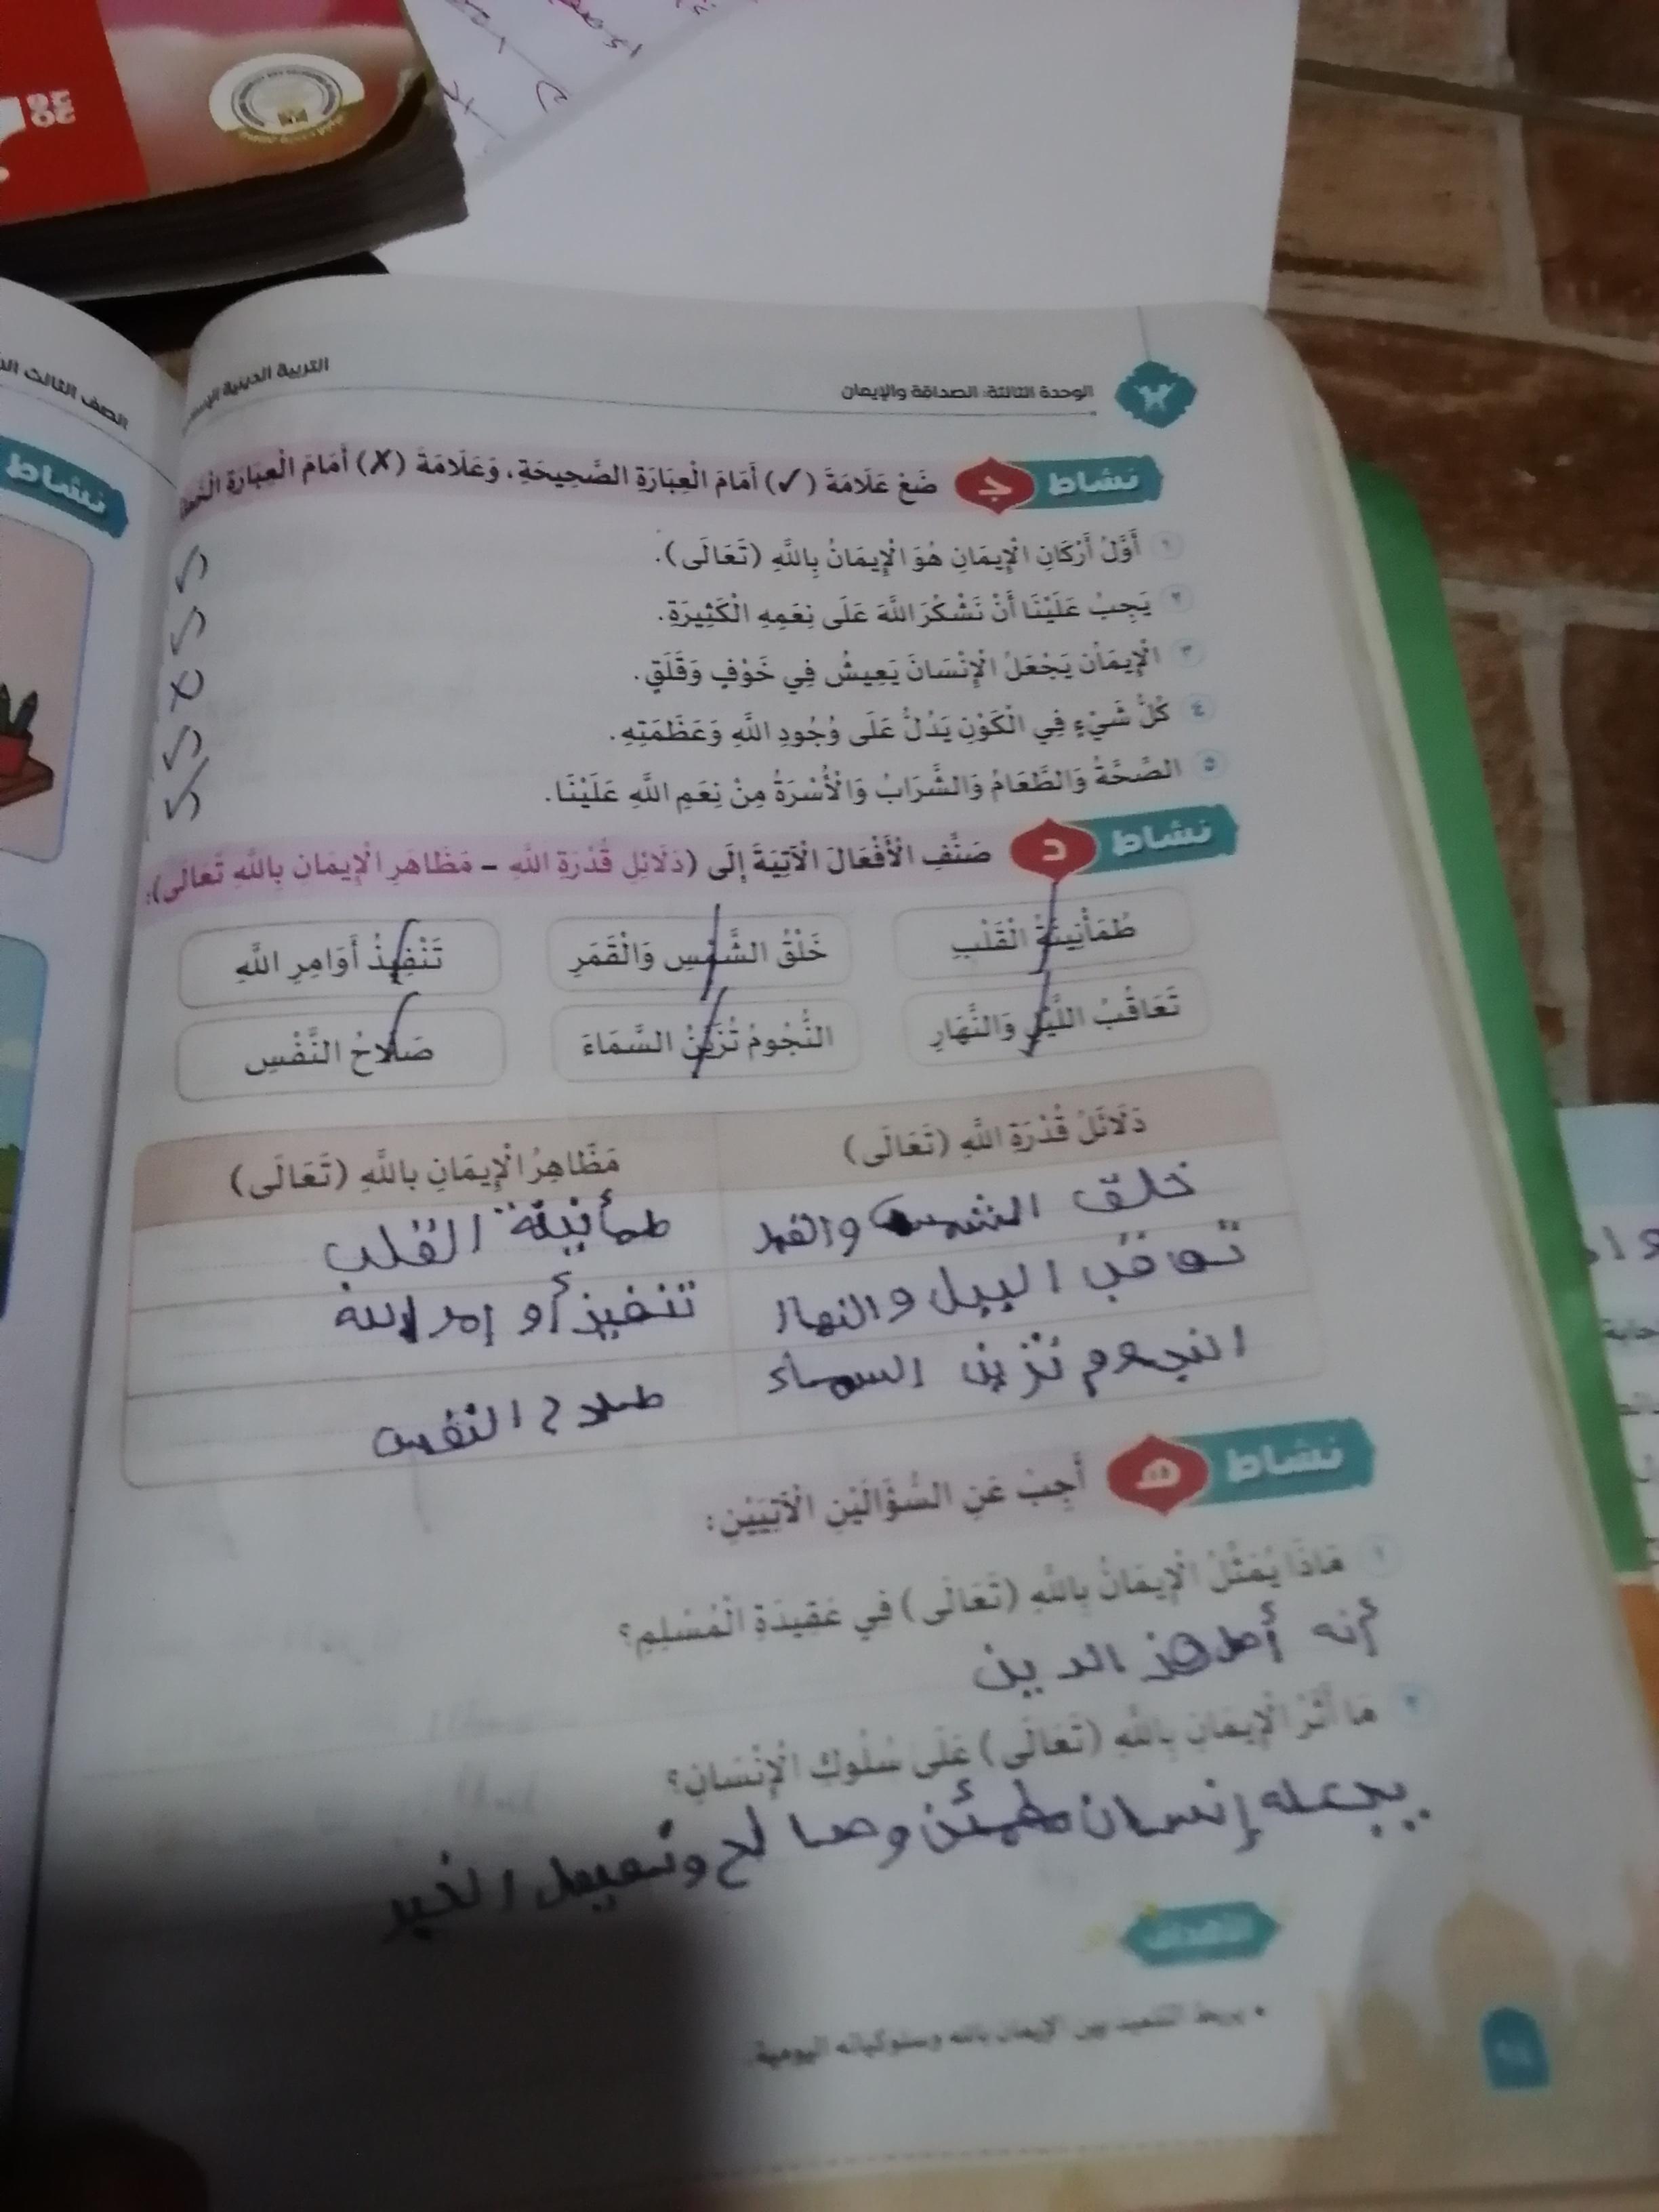 التربية الدينية
الوحدة الثالثة: الصداقة والإيمان
الصف الثالث
نشاط
نشاط ج ضَعْ عَلَامَةَ (✓) أَمَامَ الْعِبَارَةِ الصَّحِيحَةِ، وَعَلَامَةَ (✗) أَمَامَ الْعِبَارَةِ
١ أَوَّلُ أَرْكَانِ الْإِيمَانِ هُوَ الْإِيمَانُ بِاللَّهِ (تَعَالَى). ✓
٢ يَجِبُ عَلَيْنَا أَنْ نَشْكُرَ اللَّهَ عَلَى نِعَمِهِ الْكَثِيرَةِ. ✓
٣ الْإِيمَانُ يَجْعَلُ الْإِنْسَانَ يَعِيشُ فِي خَوْفٍ وَقَلَقٍ. ✗
٤ كُلُّ شَيْءٍ فِي الْكَوْنِ يَدُلُّ عَلَى وُجُودِ اللَّهِ وَعَظَمَتِهِ. ✓
٥ الصِّحَّةُ وَالطَّعَامُ وَالشَّرَابُ وَالْأُسْرَةُ مِنْ نِعَمِ اللَّهِ عَلَيْنَا. ✓
نشاط د صَنِّفِ الْأَفْعَالَ الْآتِيَةَ إِلَى (دَلَائِلِ قُدْرَةِ اللَّهِ – مَظَاهِرِ الْإِيمَانِ بِاللَّهِ تَعَالَى):
طُمَأْنِينَةُ الْقَلْبِ خَلْقُ الشَّمْسِ وَالْقَمَرِ تَنْفِيذُ أَوَامِرِ اللَّهِ
تَعَاقُبُ اللَّيْلِ وَالنَّهَارِ النُّجُومُ تُزَيِّنُ السَّمَاءَ صَلَاحُ النَّفْسِ
دَلَائِلُ قُدْرَةِ اللَّهِ (تَعَالَى) مَظَاهِرُ الْإِيمَانِ بِاللَّهِ (تَعَالَى)
خلق الشمس والقمر طمأنينة القلب
تعاقب الليل والنهار تنفيذ أوامر الله
النجوم تزين السماء صلاح النفس
نشاط هـ أَجِبْ عَنِ السُّؤَالَيْنِ الْآتِيَيْنِ:
١ مَاذَا يُمَثِّلُ الْإِيمَانُ بِاللَّهِ (تَعَالَى) فِي عَقِيدَةِ الْمُسْلِمِ؟
أنه الدين
٢ مَا أَثَرُ الْإِيمَانِ بِاللَّهِ (تَعَالَى) عَلَى سُلُوكِ الْإِنْسَانِ؟
يجعله إنسان مطمئن وصالح الخير
الأهداف
• يربط التلميذ بين الإيمان بالله وسلوكياته اليومية.